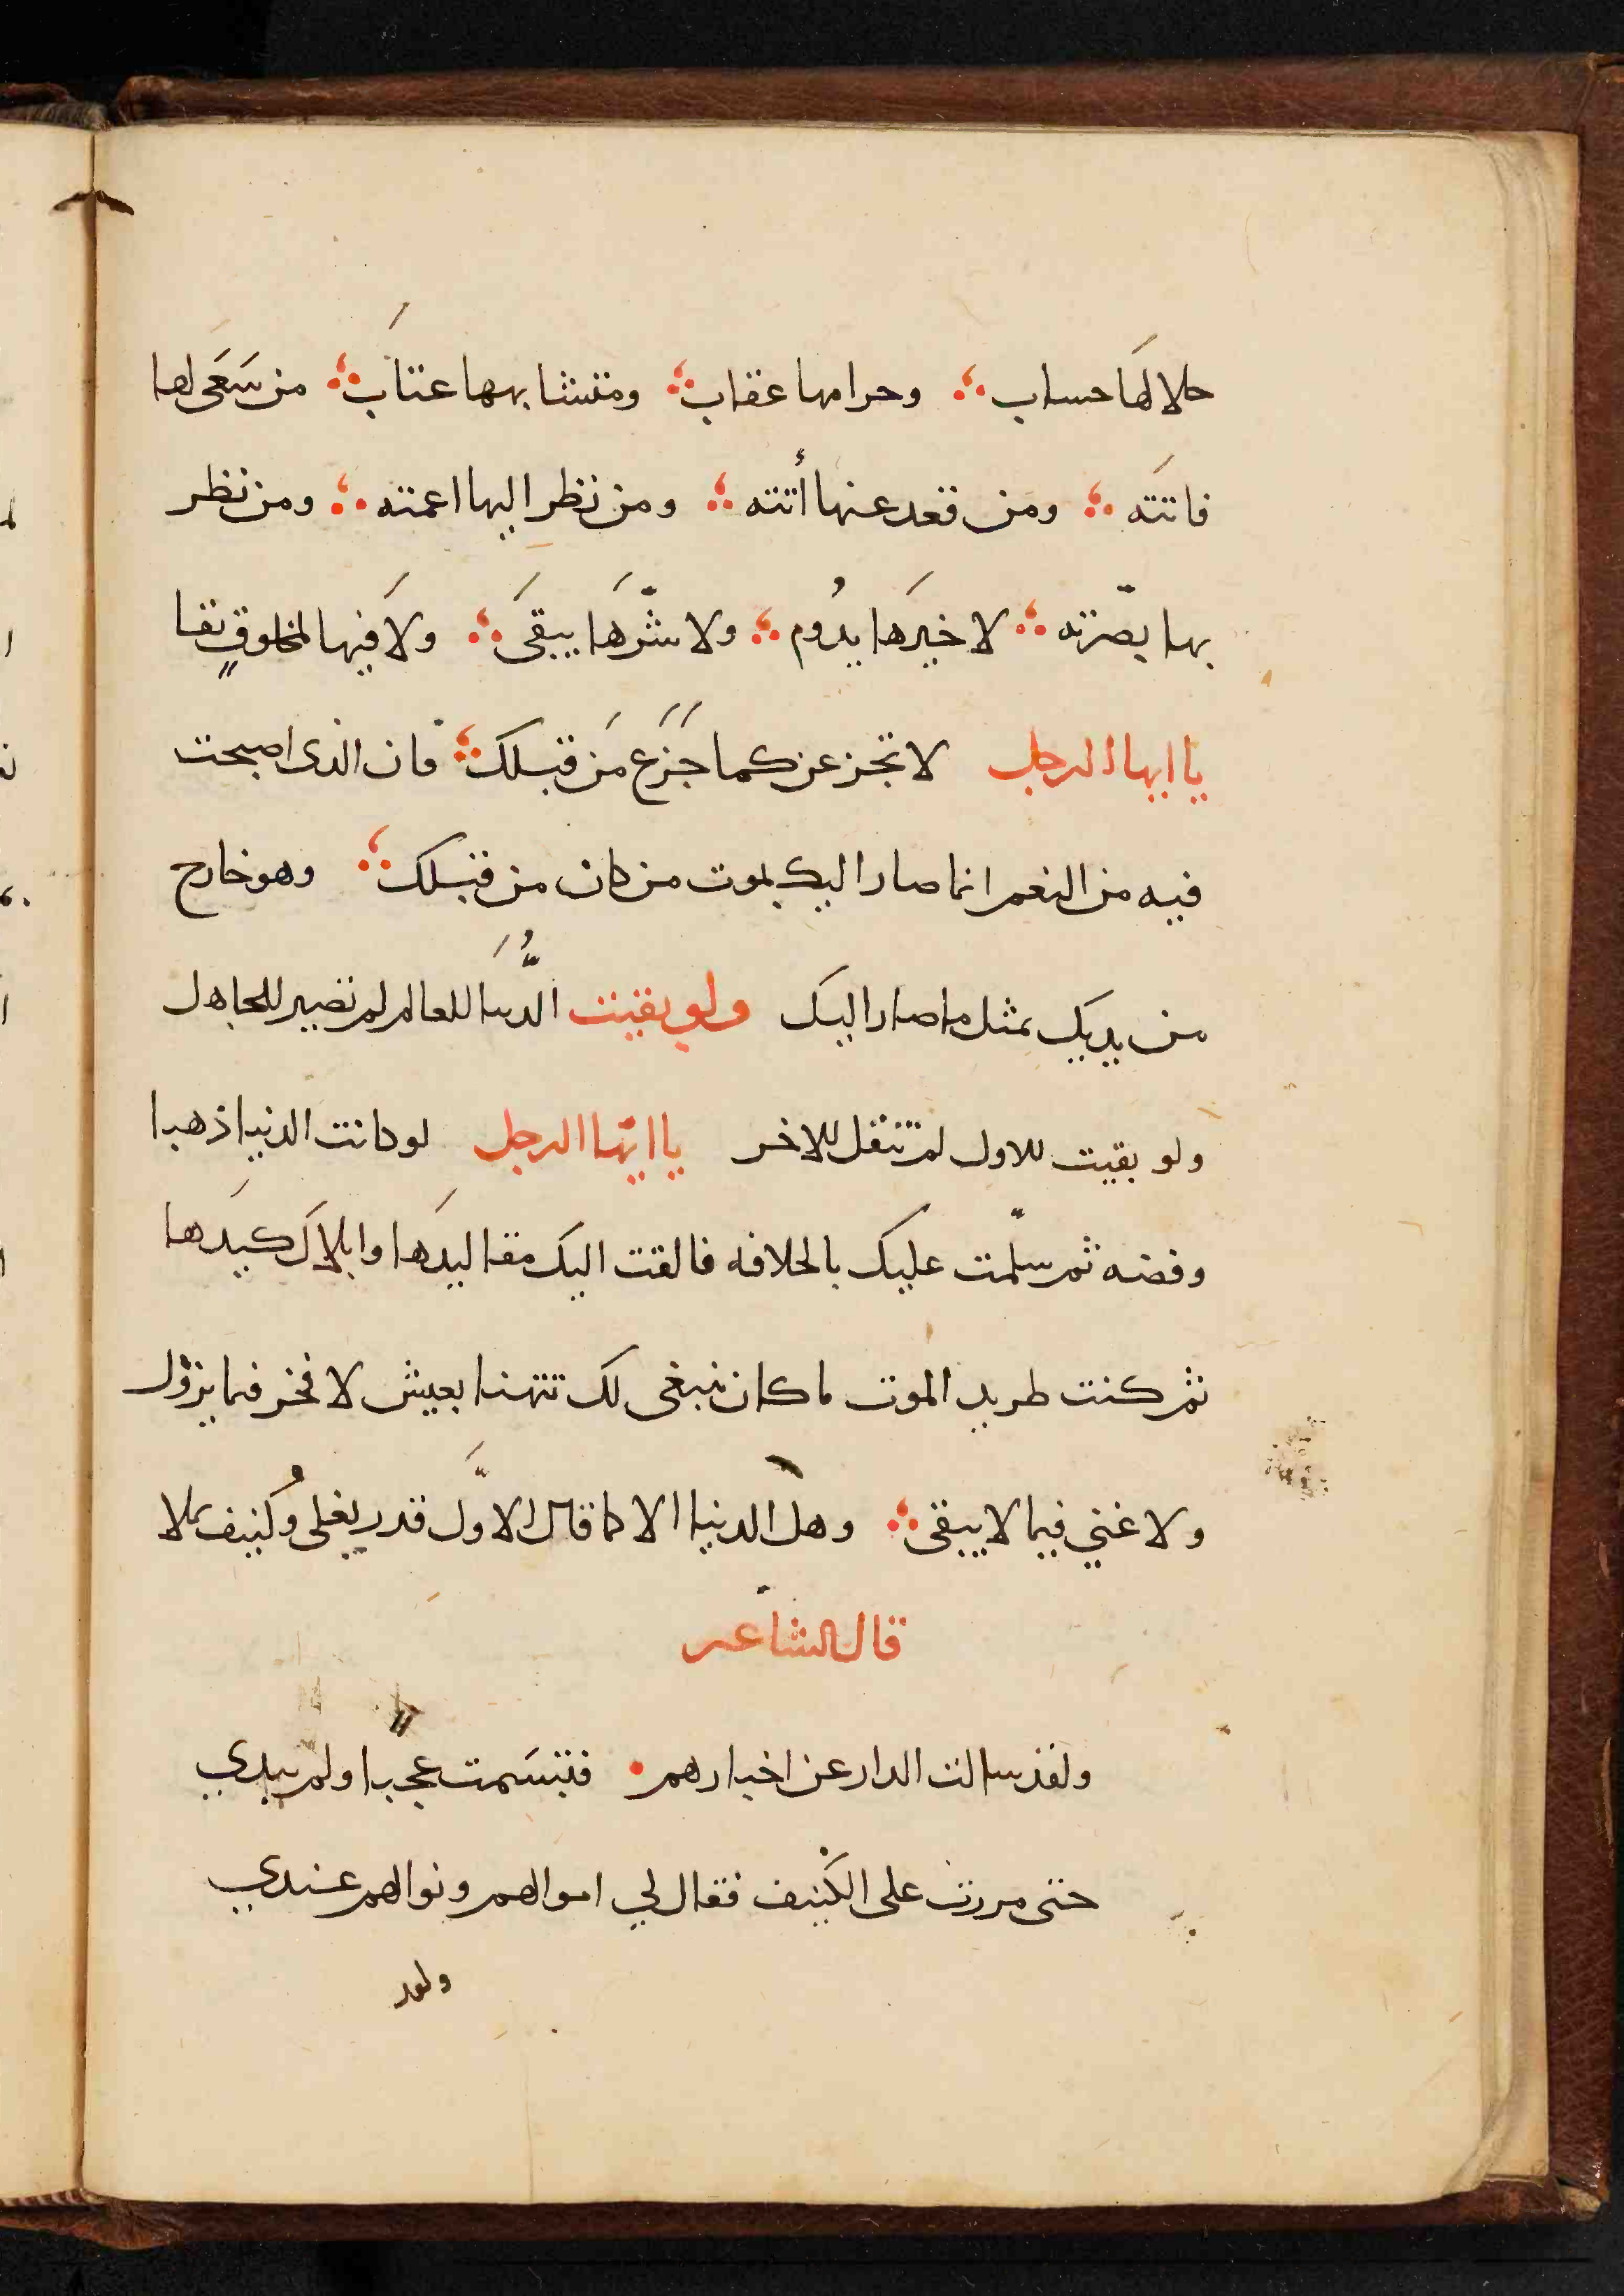 حلالها حساب ؞ وحرامها عقاب ؞ ومتشابهها عتاب ؞ من سَعَى لها
فاتته ؞ ومن قعد عنها أتته ؞ ومن نظر اليها اعمته ؞ ومن نظر
بها بصّرته ؞ لا خيرَها يدُوم ؞ ولا شرَّها يبقىَ ؞ ولَا فيها لمخلوقٍ بقا
يا ايها الرجل لا تجزعن كما جَزَع مَن قبلك ؞ فان الذى اصبحت
فيه من النعم انما صار اليك بموت من كان من قبلك ؞ وهو خارج
من يديك بمثل ما صار اليك ولو بقيت الدُّنيَا للعالم لم تصير للجاهل
ولو بقيت للاول لم تنقل للاخر يا ايّها الرجل لو كانت الدنيا ذهبا
وفضه ثم سلّمت عليك بالخلافه فالقت اليك مقاليدَها وابلاك كبدَها
ثم كنت طريد الموت ما كان ينبغى لك تتهنا بعيش لا فخر فيما يزول
ولا غني فيما لا يبقى ؞ وهل الدنيا الا كما قال الاوَّل قدر يغلى وُكنيف يملا
قال الشاعر
ولقد سالت الدار عن اخبارهم • فتبسَمت عجبا ولم تبدي
حتى مررت على الكنيف فقال لي اموالهم ونوالهم عندي
ولقد